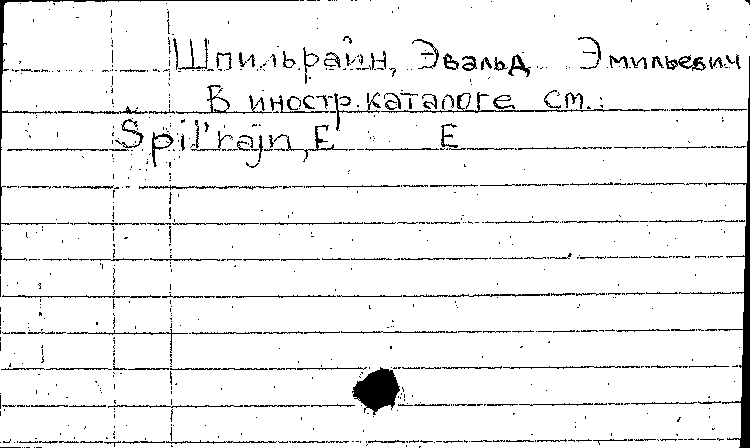 Шпильрайн, Эвальд Эмильевич
В иностр. каталоге см.:
Špil'rajn, E E